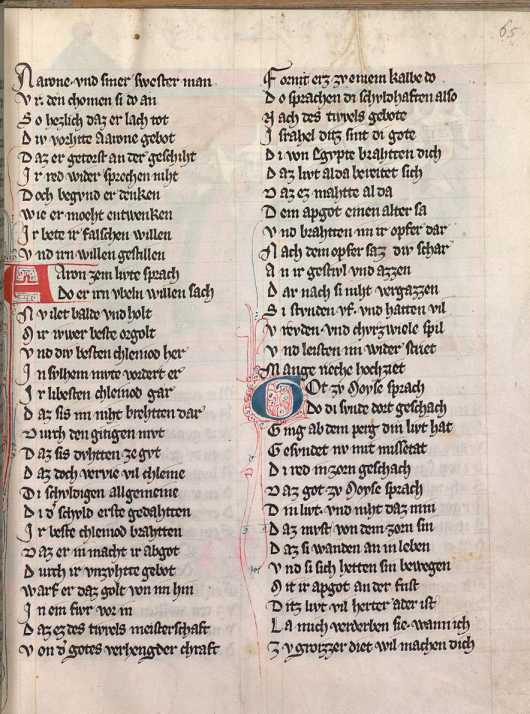 65
Aarone vnd siner swester man
Vr den chomen si do an
So hezlich daz er lach tot
Div vorhte Aarone gebot
Daz er getorst an der geschiht
Ir red wider sprechen niht
Doch begvnd er denken
Wie er mocht entwenken
Ir bete ir falschen willen
Vnd irn willen gestillen
Aron zem livte sprach
Do er irn vbeln willen sach
Nv ilet balde vnd holt
Mir iwer beste
vnd div besten chleinod her
In solhem mvte vordert er
Ir libesten chleinod gar
Daz sis im niht brehtten dar
Durch den gitigen mvt
Daz sis dvhtten ze gvt
Daz doch vervie vil chleine
Di schvldigen allgemeine
Di d' schvld erste gedahtten
Ir beste chleinod brahtten
Daz er in macht ir abgot
Durch ir vnzvhtte gebot
warf er daz golt von im hin
In ein fivr vor in
Daz ez des tivels meisterschaft
Von d' gotes verhengder chraft
Formt erz zv einem kalbe do
Do sprachen di schvldhaften also
Nach des tivels gebote
Israhel ditz sint di gote
Di von Egypte brahtten dich
Daz livt alda bereitet sich
Vaz ez mahtte al da
Dem apgot einen alter sa
Vnd brahtten im ir opfer dar
Nach dem opfer saz div schar
An ir gestvl vnd azzen
Dar nach si niht vergazzen
Si stvnden vf vnd hatten vil
Vrevden vnd chvrzwiele spil
Vnd leisten im wider striet
Mange riche hochziet
Got zv Moyse sprach
Do di svnde dort geschach
Ging ab dem perg din livt hat
Gesvndet nv mit missetat
Di red in zorn geschach
Daz got zv Moyse sprach
Din livt vnd niht daz min
Daz mvst von dem zorn sin
Daz si wanden an in leben
Vnd si sich hetten sin bewegen
Mit ir apgot an der frist
Ditz livt vil herter ader ist
La mich verderben sie wann ich
Zv groizzer diet wil machen dich